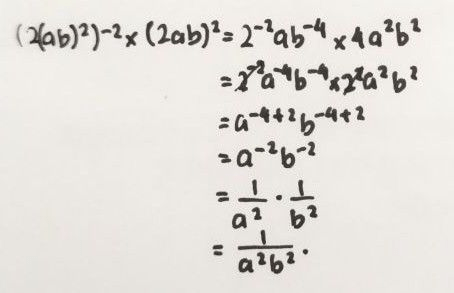 (2(ab)²)⁻² × (2ab)² = 2⁻²ab⁻⁴ × 4a²b²
= 2⁻²a⁻⁴b⁻⁴ × 2²a²b²
= a⁻⁴⁺²b⁻⁴⁺²
= a⁻²b⁻²
= 1/a² · 1/b²
= 1/a²b² .